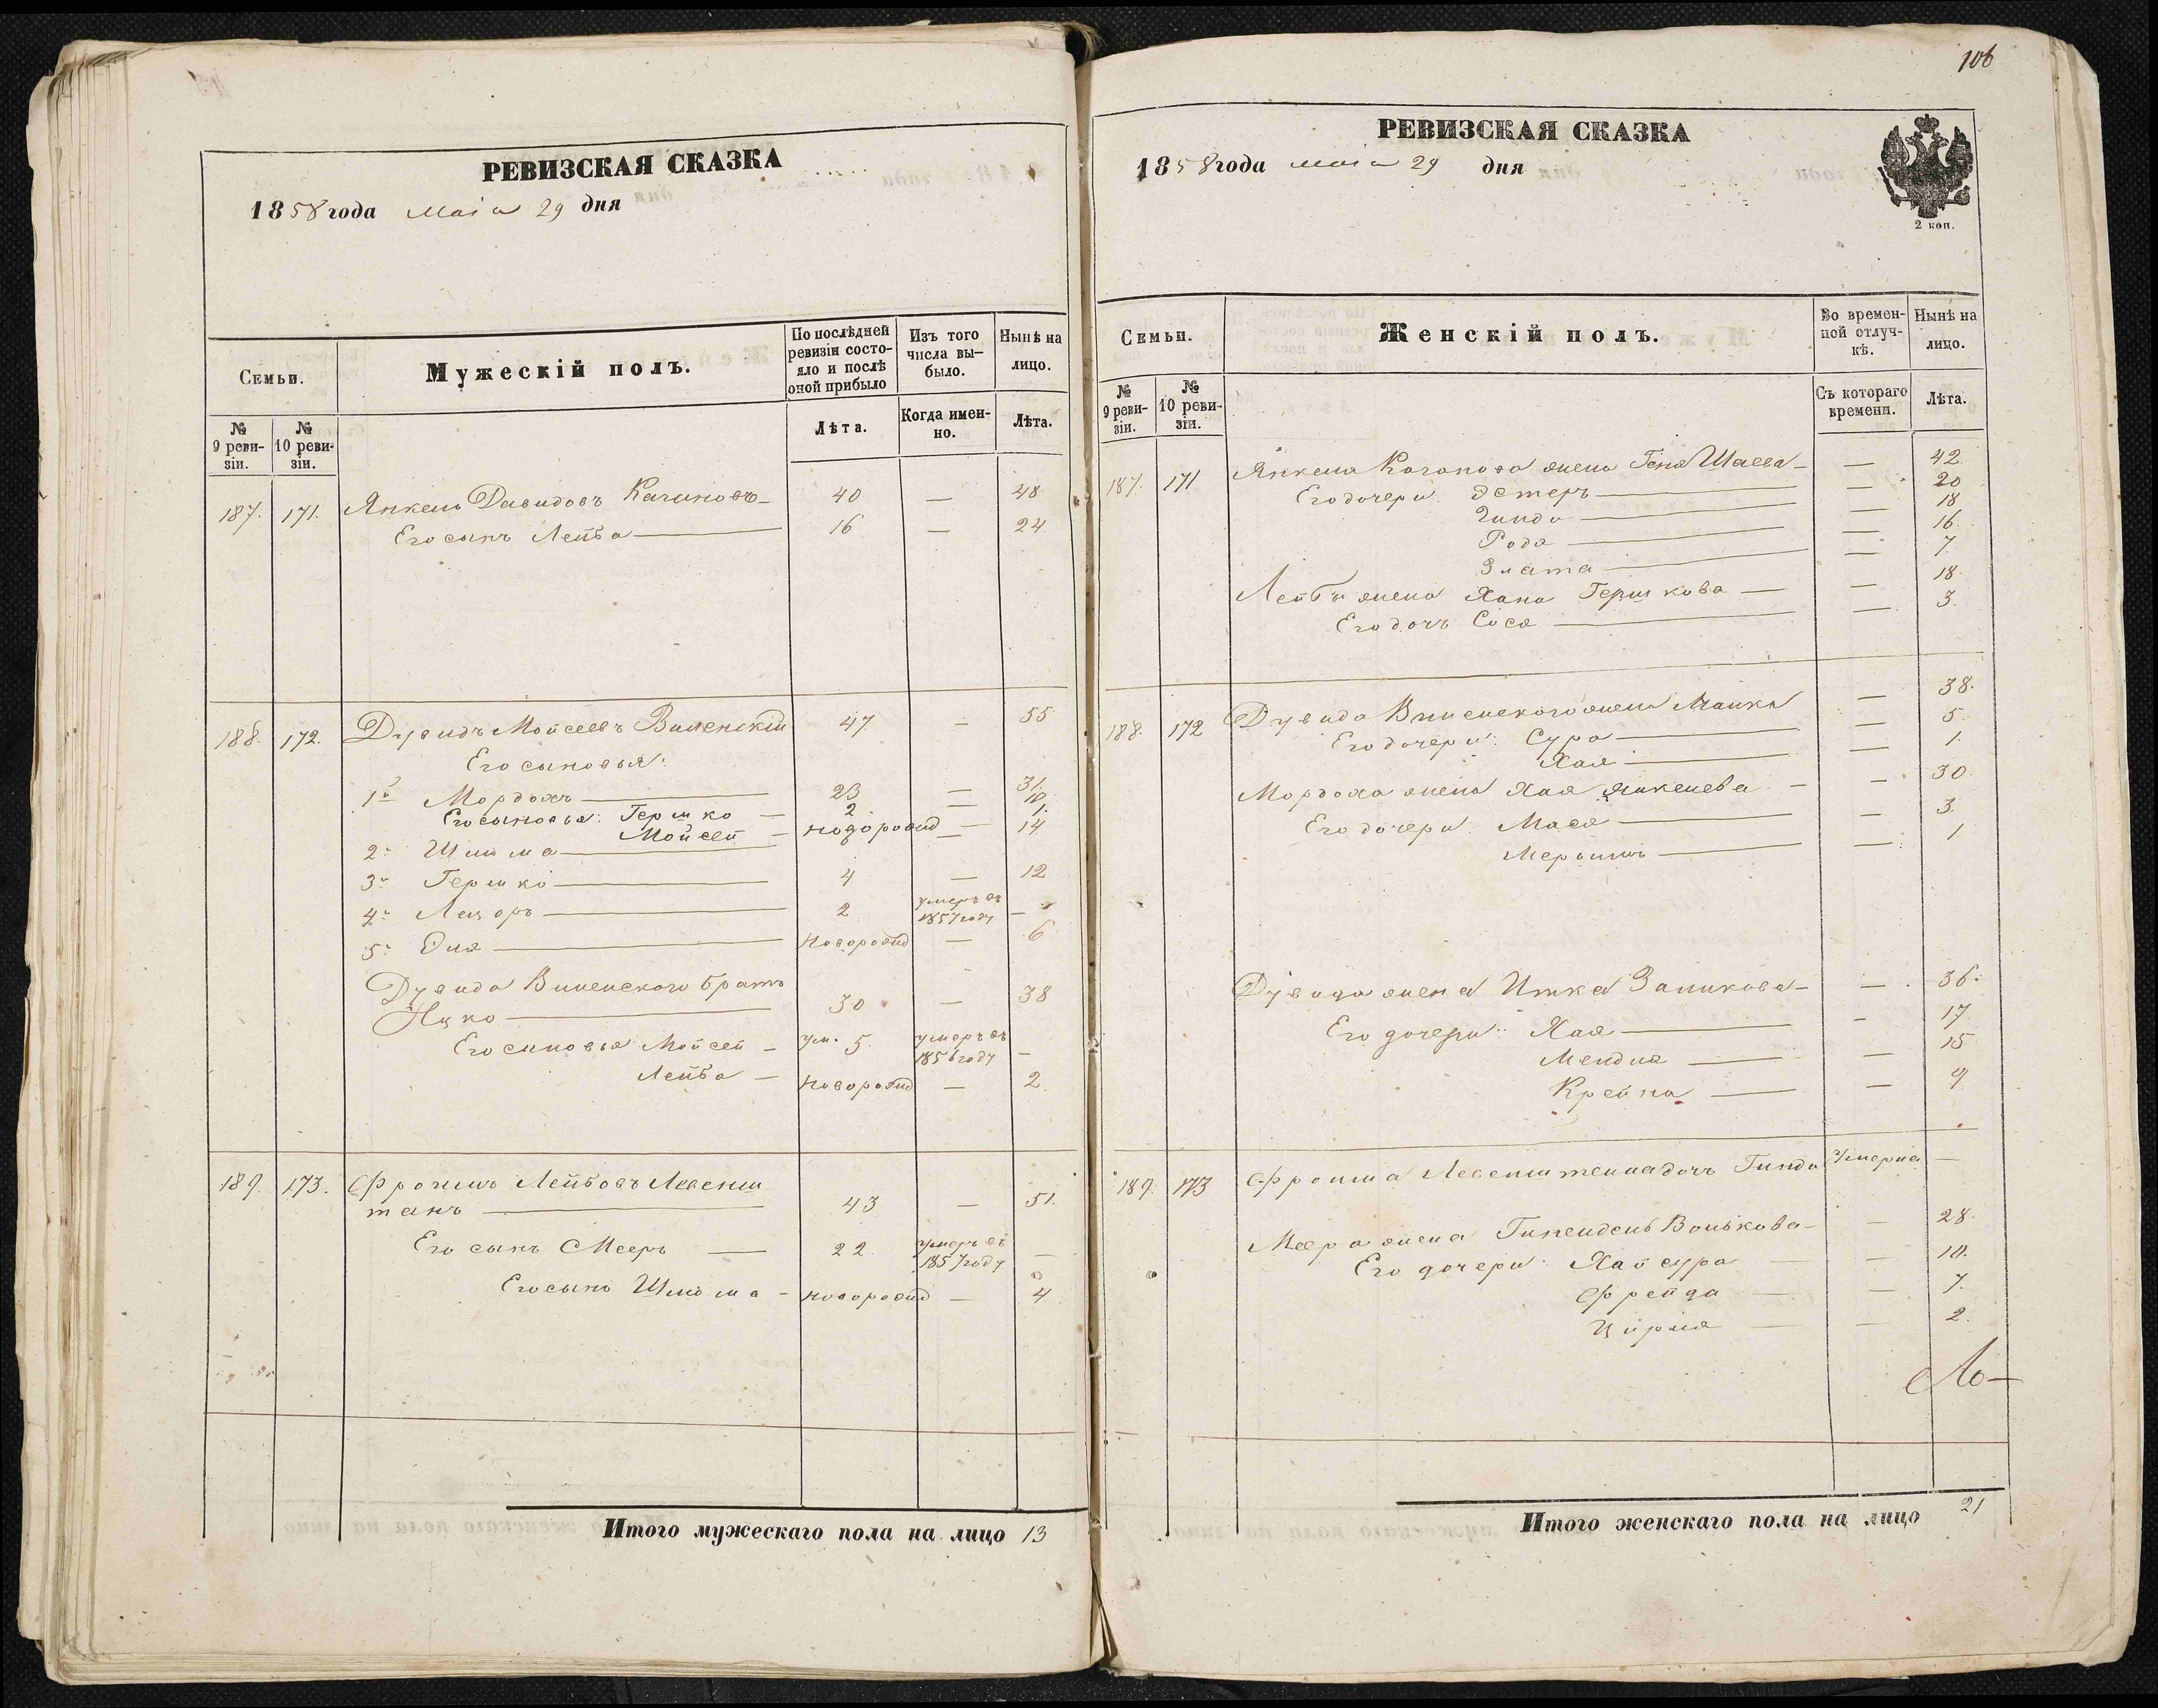 РЕВИЗСКАЯ СКАЗКА
1858 года Маіа 29 дня
Семьи.
Мужескій полъ.
По послѣдней ревизіи состояло и послѣ оной прибыло
Изъ того числа выбыло.
Нынѣ на лицо.
№ 9 ревизіи.
№ 10 ревизіи.
Лѣта.
Когда именно.
Лѣта.
187. 171. Янкель Давидовъ Кагановъ 40 — 48
Его сынъ Лейба 16 — 24
188. 172. Дувидъ Мойсеевъ Виленскій 47 — 55
Его сыновья:
1й Мордохъ 23 — 31.
Его сыновья: Гершко 2 — 10
Мойсей новорожд — 1.
2й Шлиома 6 — 14
3й Гершко 4 — 12
4й Лазоръ 2 умеръ въ 1857 году —
5й Эля новорожд — 6
Дувида Виленского братъ
Ицко 30 — 38
Его сыновья Мойсей ум. 5. умеръ въ 1856 году —
Лейба новорожд — 2
189. 173. Фроимъ Лейбовъ Левенш
танъ 43 — 51.
Его сынъ Мееръ 22 умеръ въ 1857 году —
Его сынъ Шлиома новорожд — 4
Итого мужескаго пола на лицо 13
106
РЕВИЗСКАЯ СКАЗКА
1858 года маіа 29 дня
2 коп.
Семьи.
Женскій полъ.
Во временной отлучкѣ.
Нынѣ на лицо.
№ 9 ревизіи.
№ 10 ревизіи.
Съ котораго времени.
Лѣта.
187. 171 Янкеля Каганова жена Геня — 42
Его дочери Эстеръ — 20
Гинда — 18
Рода — 16.
Злата — 7
Лейбы жена Хана Гершкова — 18
Его дочь Сося — 3.
188. 172 Дувида Виленского жена Малка — 38.
Его дочери: Сура — 5.
Хая — 1.
Мордоха жена Хая Янкелева — 30
Его дочери Мася — 3.
— 1
Дувида жена Итка — 36.
Его дочери: Хая — 17
Мендля — 15
Крейна — 9
189. 173 Фроима дочь Гинда умерла —
Меера жена — 28
Его дочери: Хай сура — 10.
Фрейда — 7.
Цирля — 2.
Итого женскаго пола на лицо 21